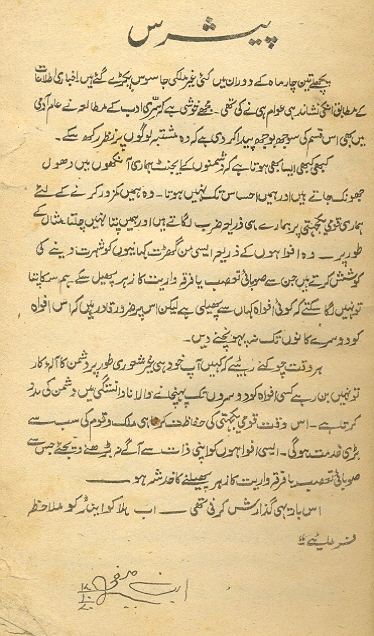 پیشرس
پچھلے تین چار ماہ کے دوران میں کئی غیر ملکی جاسوس پکڑے گئے ہیں اخباری اطلاعات
کے مطابق انکی نشاندہی عوام ہی نے کی تھی۔ مجھے خوشی ہے کہ سرّی ادب کے مطالعہ نے عام آدمی
میں بھی اس قسم کی سوجھ بوجھ پیدا کر دی ہے کہ وہ مشتبہ لوگوں پر نظر رکھ سکے۔
کبھی کبھی ایسا بھی ہوتا ہے کہ دشمنوں کے ایجنٹ ہماری آنکھوں میں دھول
جھونک جاتے ہیں اور ہمیں احساس تک نہیں ہوتا۔ وہ ہمیں کمزور کرنے کے لئے
ہماری قومی یکجہتی پر ہمارے ہی ذریعہ ضرب لگاتے ہیں اور ہمیں پتا نہیں چلتا مثال کے
طور پر۔ وہ افواہوں کے ذریعہ ایسی من گھڑت کہانیوں کو شہرت دینے کی
کوشش کرتے ہیں جن سے صوبائی تعصب یا فرقہ واریت کا زہر پھیل سکے۔ ہم سراغ پتا
تو نہیں لگا سکتے کہ کوئی افواہ کہاں سے پھیلی ہے لیکن اس پر ضرور قادر ہیں کہ اس افواہ
کو دوسرے کانوں تک نہ پہونچنے دیں۔
ہر وقت چوکنے رہیئے کہ کہیں آپ خود ہی غیر شعوری طور پر دشمن کا آلۂ کار
تو نہیں بن رہے کسی افواہ کو دوسروں تک پہنچانے والا نادانستگی میں دشمن کی مدد
کرتا ہے۔ اس وقت قومی یکجہتی کی حفاظت کرنا ہی ملک و قوم کی سب سے
بڑی خدمت ہوگی۔ ایسی افواہوں کو اپنی ذات سے آگے نہ بڑھنے دیجئے جس سے
صوبائی تعصب یا فرقہ واریت کا زہر پھیلنے کا خدشہ ہو۔
اس بار یہی گذارش کرنی تھی۔ اب ہلاکو اینڈ کو ملاحظہ
فرمایئے!!
ابن صفی